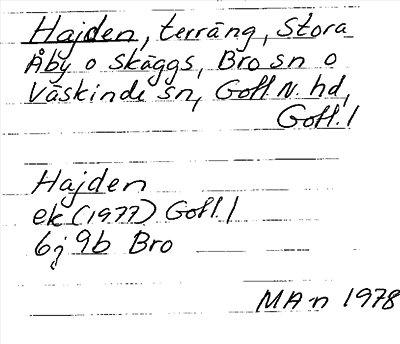 Hajden, terräng, Stora
Åby o Skäggs, Bro sn o
Väskinde sn, Gotl. N. hd,
Gotl. l
Hajden
ek (1977) Gotl. l
6j 9b Bro
MA-n 1978